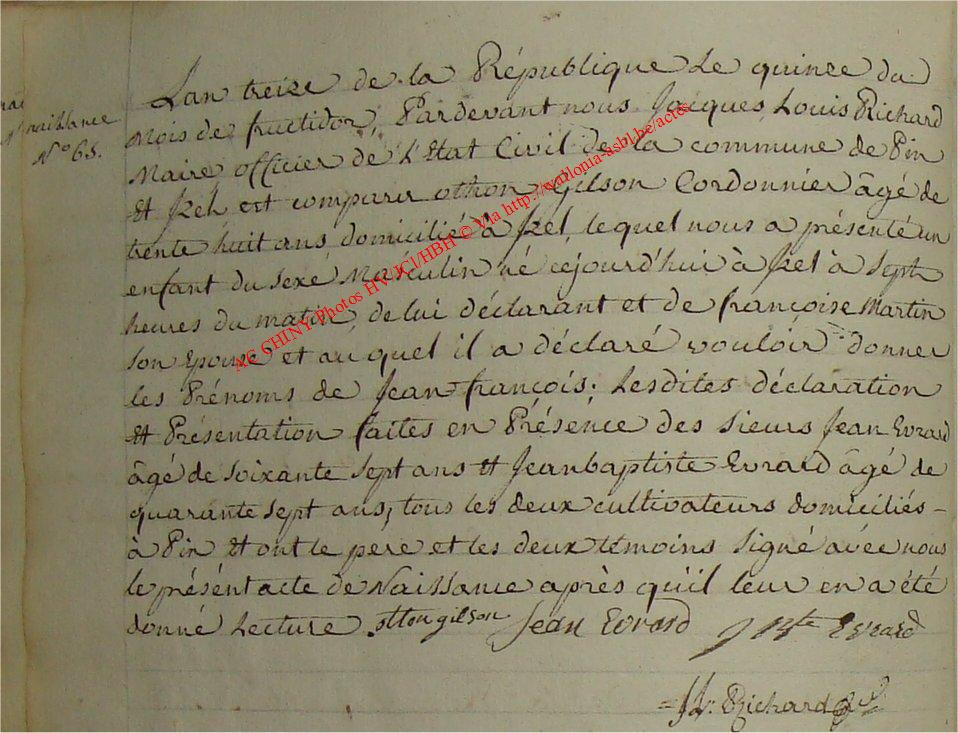 naissance
N.° 65.
L'an treize de la République Le quinze du
Mois de fructidor, Pardevant nous Jacques Louis Richard
Maire officier de L'Etat Civil de la commune de Pin
Et Izel est comparu othon Gilson Cordonnier âgé de
trente huit ans domicilié à Izel, lequel nous a présenté un
enfant du sexe Masculin né cejourd'hui à Izel à Sept
heures du matin, de lui déclarant et de françoise Martin
son Epouse et au quel il a déclaré vouloir donner
les Prénoms de Jean-françois; Lesdites déclaration
Et Présentation faites en Présence des sieurs Jean Evrard
âgé de soixante sept ans Et Jeanbaptiste Evrard âgé de
quarante sept ans, tous les deux cultivateurs domiciliés -
à Pin Et ont le pere et les deux témoins signé avec nous
le présent acte de Naissance après qu'il leur en a été
donné Lecture otton gilson Jean Evrard J Bte Evrard
Richard
AC CHINY Photos HV/JCl/HBH © Via http://wallonia-asbl.be/actes